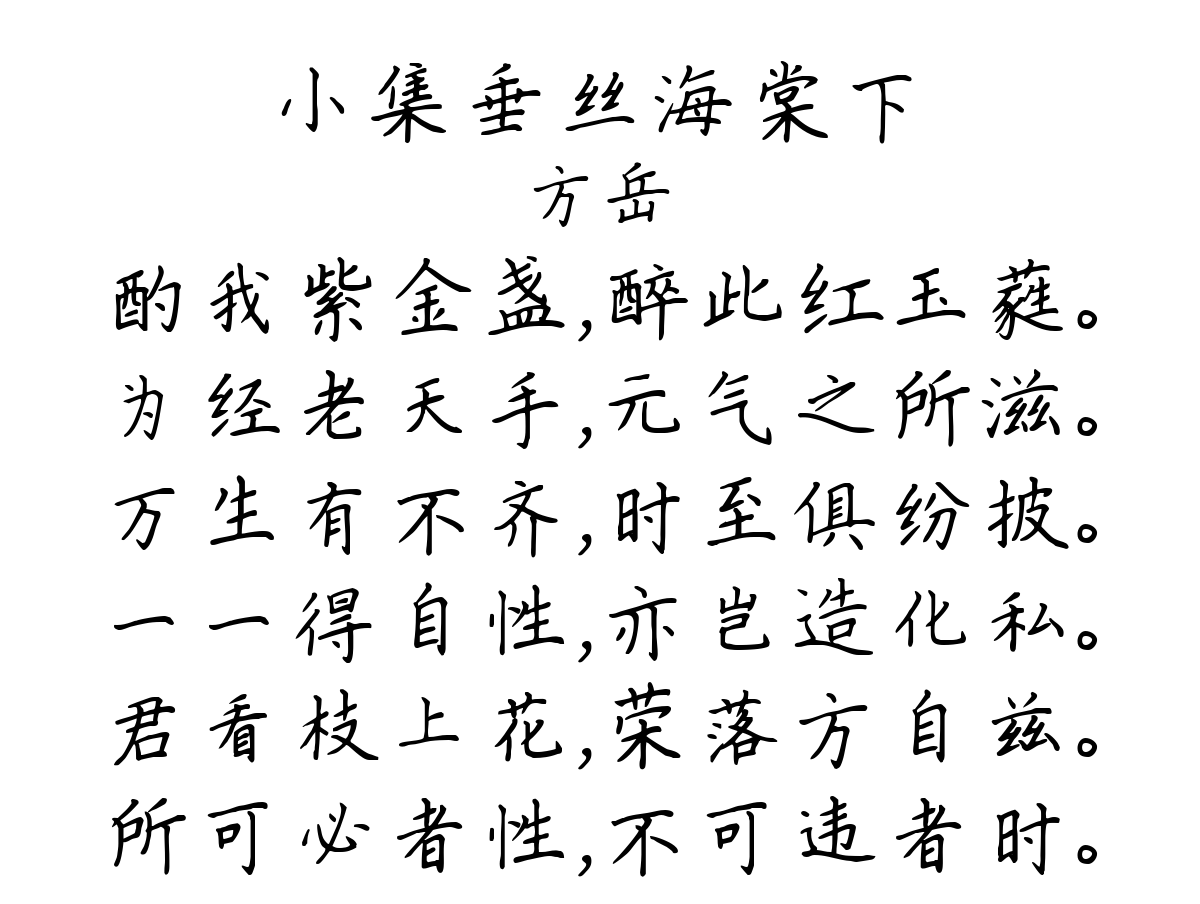 小集垂丝海棠下
方岳
酌我紫金盏,醉此红玉蕤。
为经老天手,元气之所滋。
万生有不齐,时至俱纷披。
一一得自性,亦岂造化私。
君看枝上花,荣落方自兹。
所可必者性,不可违者时。